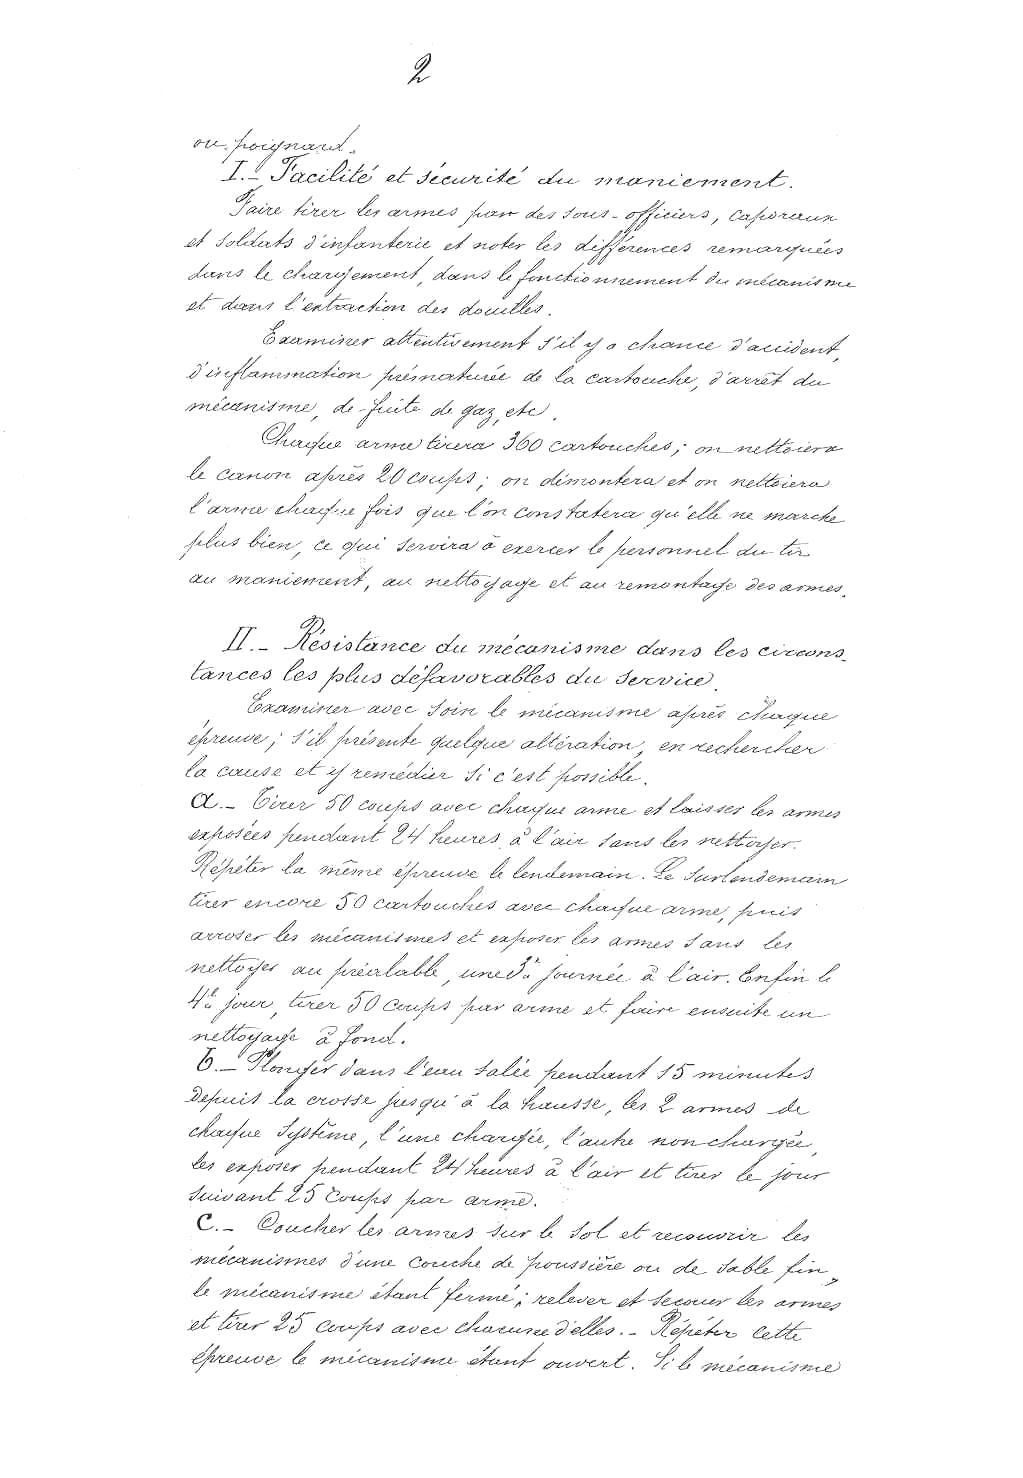 2
ou poignard.
I. _ Facilité et sécurité du maniement.
Faire tirer les armes par des sous-officiers, caporaux
et soldats d'infanterie et noter les différences remarquées
dans le chargement, dans le fonctionnement du mécanisme
et dans l'extraction des douilles.
Examiner attentivement s'il y a chance d'accident,
d'inflammation prématurée de la cartouche, d'arrêt du
mécanisme, de fuite de gaz, etc.
Chaque arme tirera 360 cartouches; on nettoiera
le canon après 20 coups; on démontera et on nettoiera
l'arme chaque fois que l'on constatera qu'elle ne marche
plus bien, ce qui servira à exercer le personnel du tir
au maniement, au nettoyage et au remontage des armes.
II. _ Résistance du mécanisme dans les circons-
tances les plus défavorables du service.
Examiner avec soin le mécanisme après chaque
épreuve; s'il présente quelque altération, en rechercher
la cause et y remédier si c'est possible.
a. _ Tirer 50 coups avec chaque arme et laisser les armes
exposées pendant 24 heures à l'air sans les nettoyer.
Répéter la même épreuve le lendemain. Le surlendemain
tirer encore 50 cartouches avec chaque arme, puis
arroser les mécanismes et exposer les armes sans les
nettoyer au préalable, une 3e journée à l'air. Enfin le
4e jour, tirer 50 coups par arme et faire ensuite un
nettoyage à fond.
b. _ Plonger dans l'eau salée pendant 15 minutes
depuis la crosse jusqu'à la hausse, les 2 armes de
chaque système, l'une chargée, l'autre non chargée,
les exposer pendant 24 heures à l'air et tirer le jour
suivant 25 coups par arme.
C. _ Coucher les armes sur le sol et recouvrir les
mécanismes d'une couche de poussière ou de sable fin,
le mécanisme étant fermé; relever et secouer les armes
et tirer 25 coups avec chacune d'elles. _ Répéter cette
épreuve le mécanisme étant ouvert. Si le mécanisme